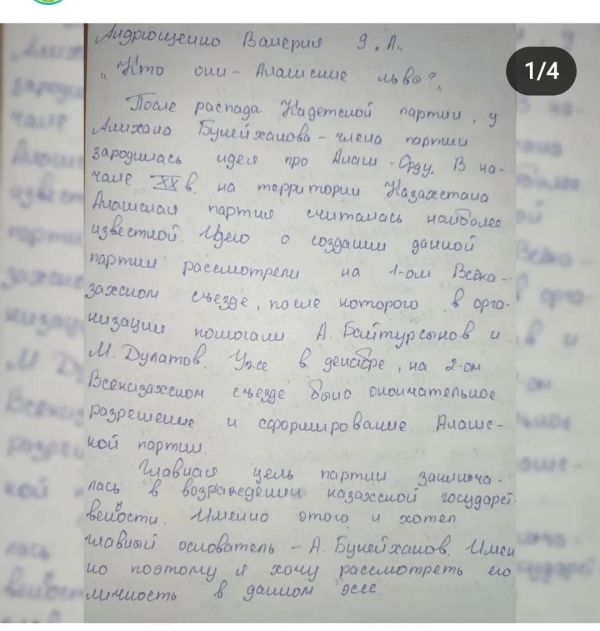 1/4
Андрющенко Валерия 9 "А"
"Кто они - Алашские львы?"
После распада Кадетской партии, у
Алихана Букейханова - члена партии
зародилась идея про Алаш-Орду. В на-
чале XX в. на территории Казахстана
Алашская партия считалась наиболее
известной. Идею о создании данной
партии рассмотрели на 1-ом Всека-
захском съезде, после которого в орга-
низации помогали А. Байтурсынов и
М. Дулатов. Уже в декабре, на 2-ом
Всеказахском съезде было окончательное
разрешение и сформирование Алашс-
кой партии.
Главная цель партии заключа-
лась в возрождении казахской государст-
венности. Именно этого и хотел
главный основатель - А. Букейханов. Имен
но поэтому я хочу рассмотреть его
личность в данном эссе